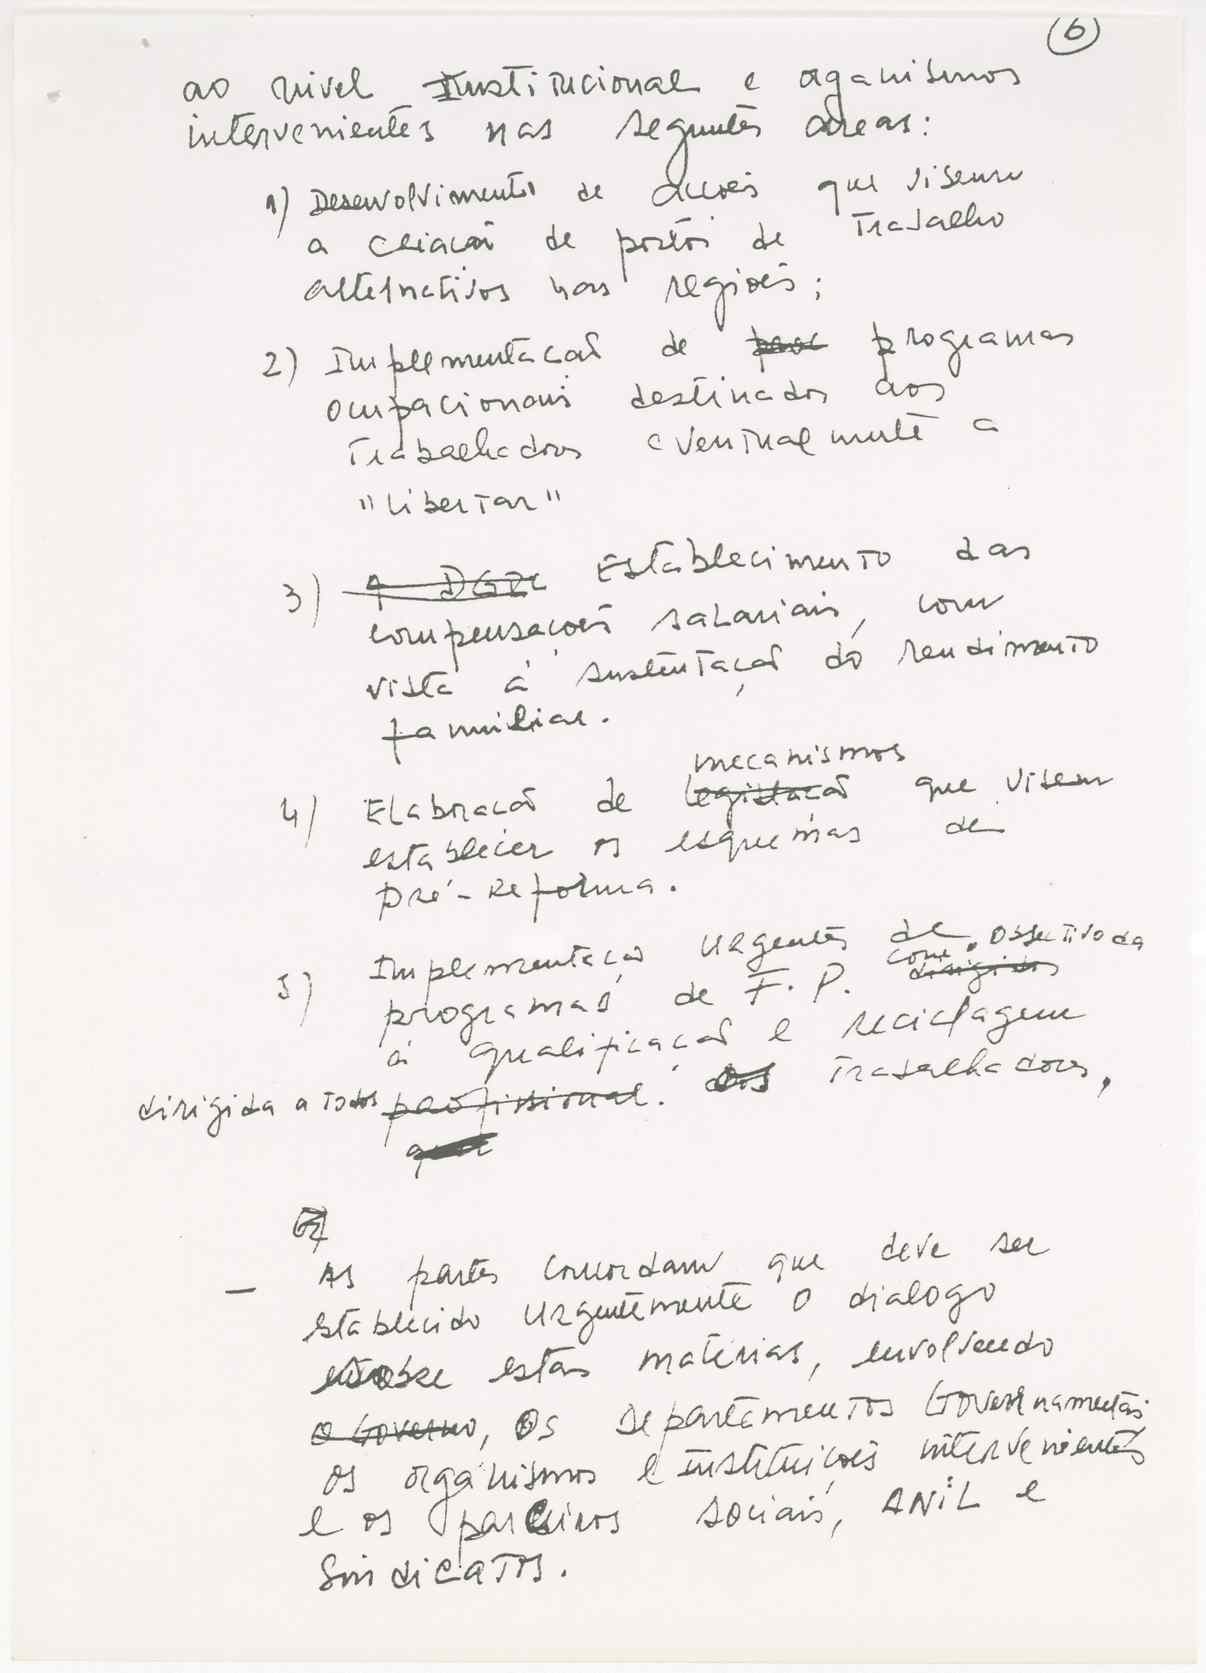 6
ao nivel Institucional e oganismos
intervenientes nas seguntes áreas:
1) Desenvolvimento de acções que visem
a criação de postos de Trabalho
alternativos nas regiões;
2) Implementação de programas
ocupacionais destinados aos
Trabalhadores eventualmente a
"libertar"
3) A DGE Establecimento das
compensações salariais, com
vista á sustentação do rendimento
familiar.
mecanismos
4) Elaboração de legislação que visem
establecer os esquemas de
pré-Reforma.
5) Implementação urgente de
programas de F.P. com o objectivo da
dirigidos
á qualificação e reciclagem
dirigida a todos profissional. dos Trabalhadores,
que
- As partes concordam que deve ser
establecido urgentemente o dialogo
sobre estas matérias, envolvendo
o Governo, Os Departamentos Governamentais
os organismos e instituições intervenientes
e os parceiros sociais, ANIL e
Sindicatos.